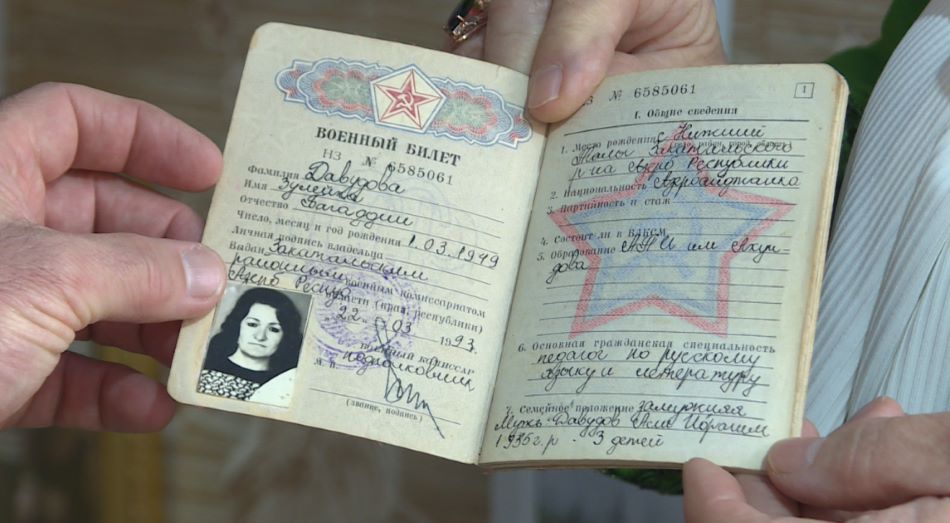 ВОЕННЫЙ БИЛЕТ
НЗ № 6585061
Фамилия Давудова
Имя Зулейха
Отчество Багаддин
Число, месяц и год рождения 1.03.1949
Личная подпись владельца
Выдан Закатальским
районным военным комиссариатом
Азерб Респуб области (край, республики)
22 03 1993.
военный комиссар
М. П. подполковник
(звание, подпись)
НЗ № 6585061
1
I. Общие сведения
1. Место рождения с. Нижний
Закатальского
р-на Азерб Республики
2. Национальность Азербайджанка
3. Партийность и стаж
4. Состоит ли в ВЛКСМ
5. Образование АПИ им Ахун
дова
6. Основная гражданская специальность
педагог по русскому
языку и литературу
7. Семейное положение замужняя
Муж: Давудов
1935 г. р - 3 детей